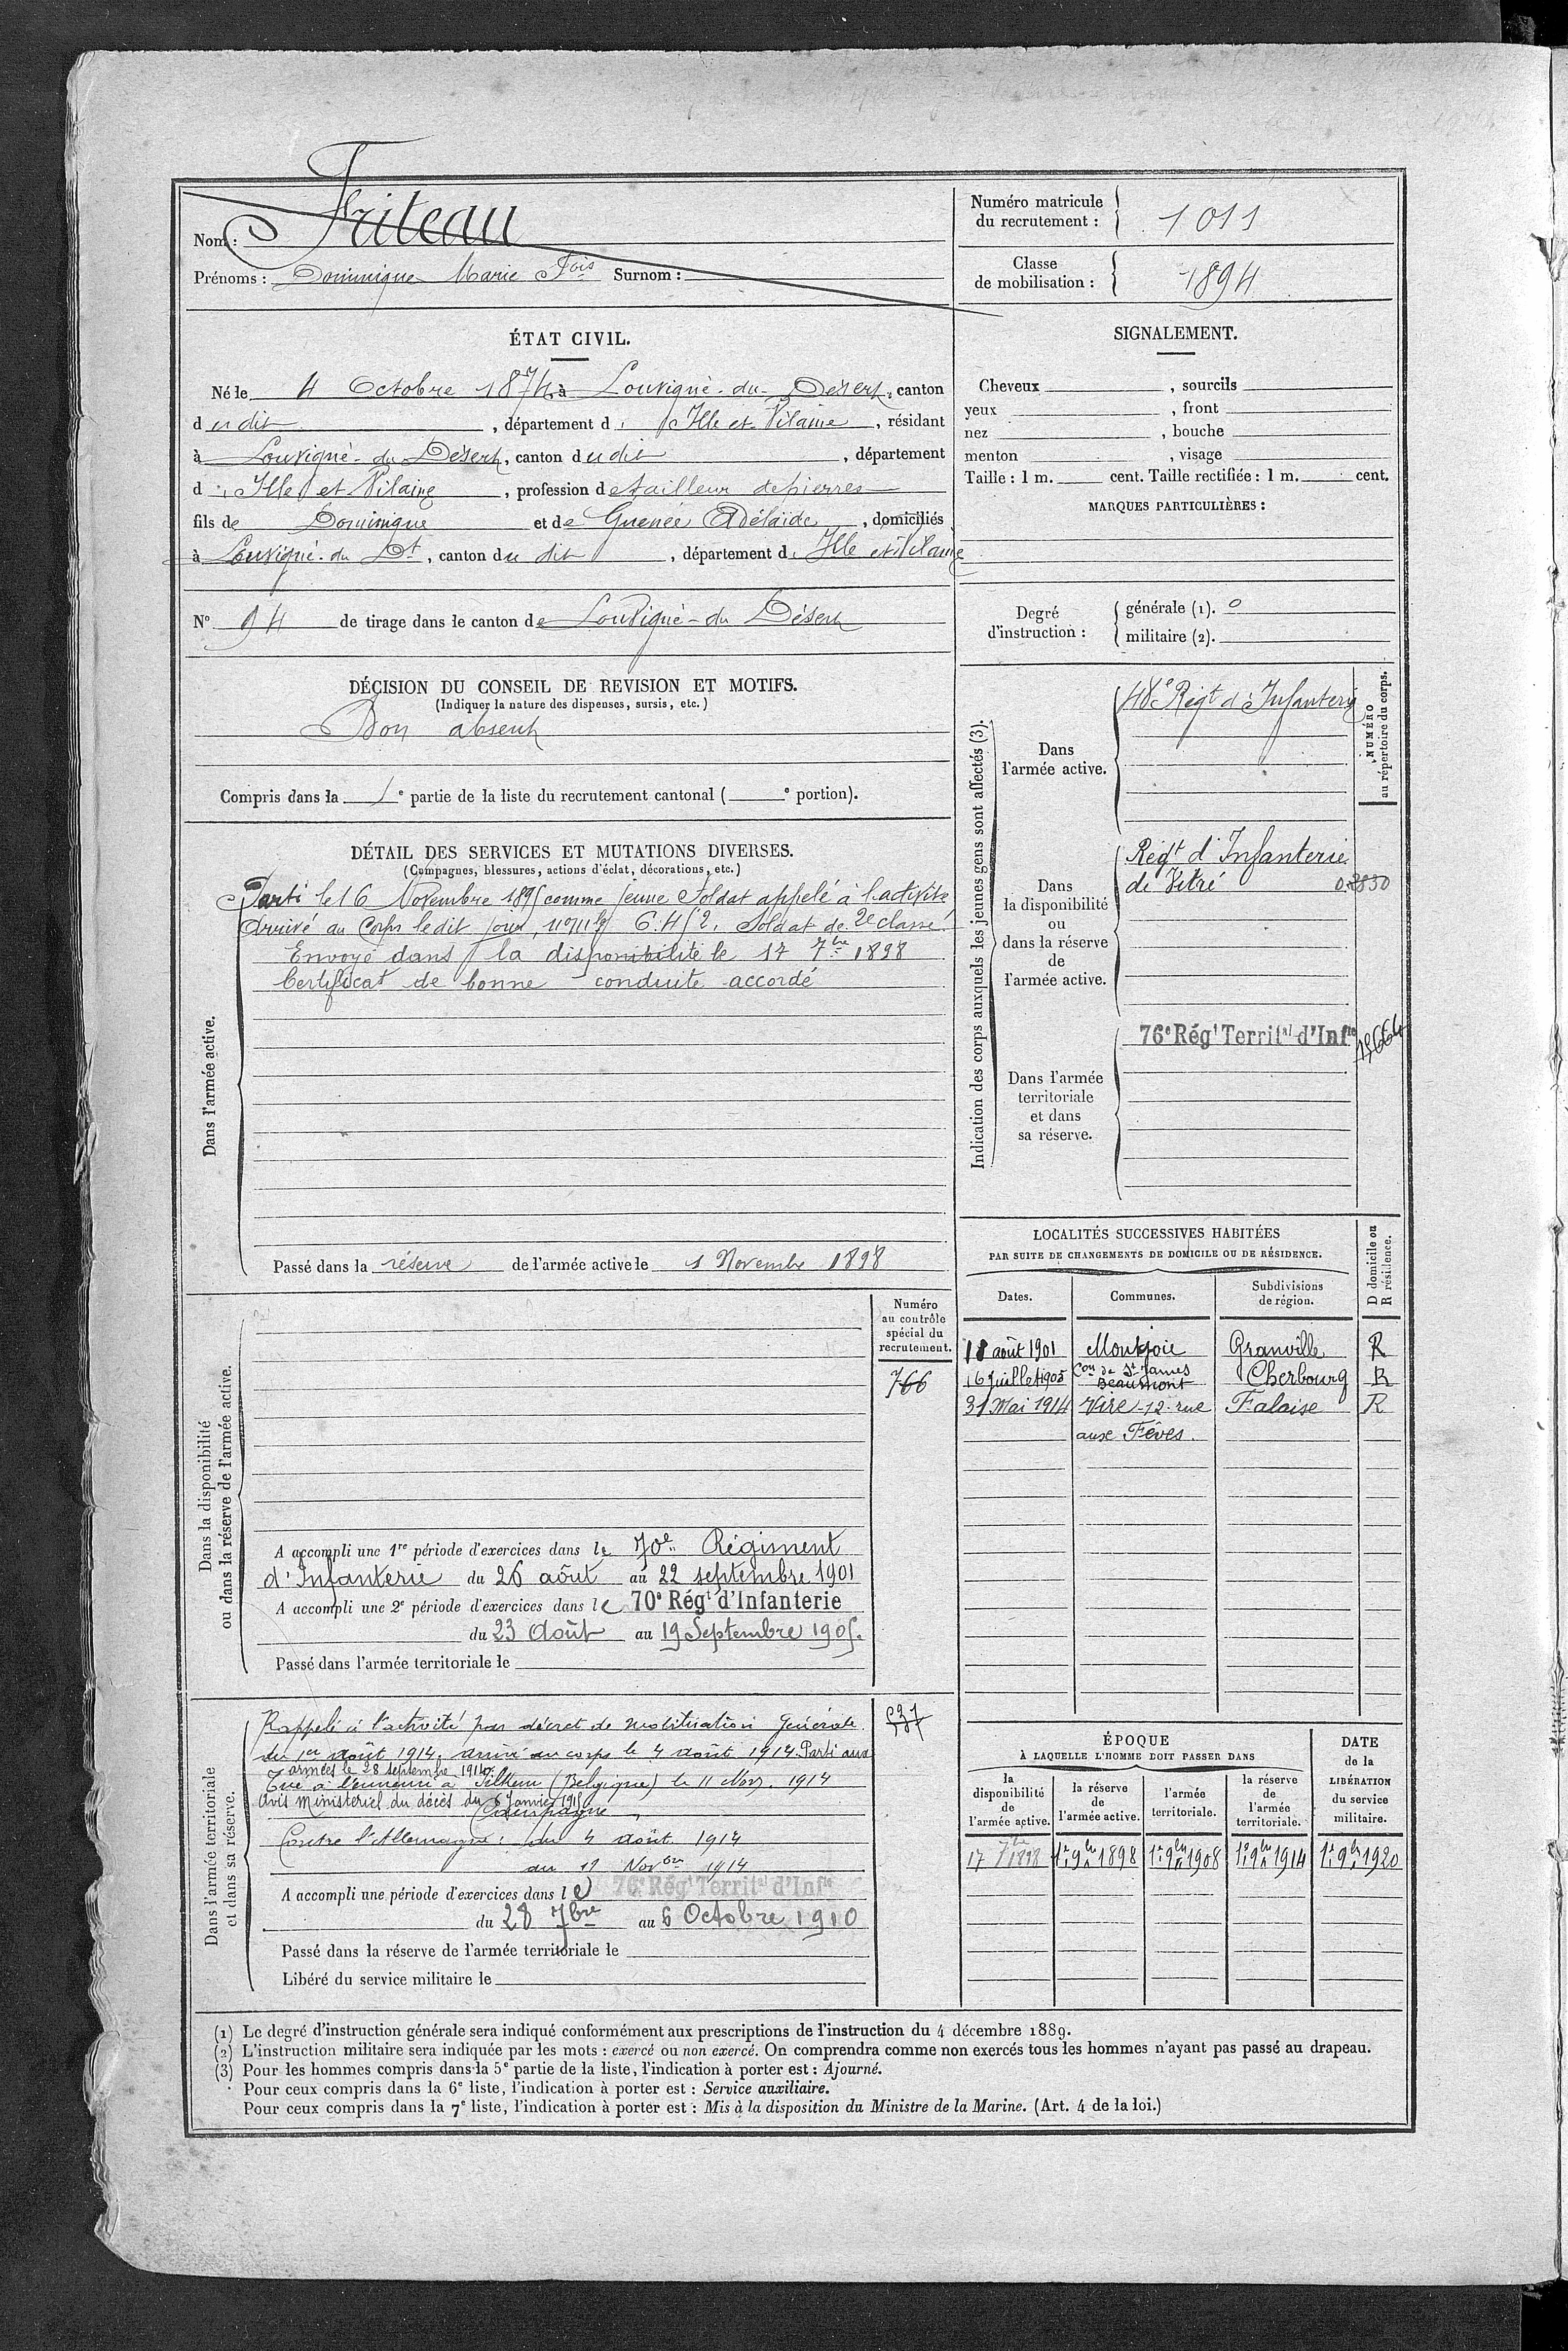 Nom : Friteau
Prénoms : Dominique Marie Fois Surnom :
Numéro matricule du recrutement : 1011
Classe de mobilisation : 1894
ÉTAT CIVIL.
Né le 4 Octobre 1874 à Louvigné-du-Désert, canton
dudit, département d'Ille et Vilaine, résidant
à Louvigné-du Désert, canton dudit, département
d'Ille et Vilaine, profession de tailleur de pierres
fils de Dominique et de Guenée Adélaïde, domiciliés
à Louvigné-du Dt, canton du dit, département d'Ille et Vilaine
N° 94 de tirage dans le canton de Louvigné-du Désert
DÉCISION DU CONSEIL DE REVISION ET MOTIFS.
(Indiquer la nature des dispenses, sursis, etc.)
Bon absent
Compris dans la 1e partie de la liste du recrutement cantonal ( e portion).
DÉTAIL DES SERVICES ET MUTATIONS DIVERSES.
(Campagnes, blessures, actions d'éclat, décorations, etc.)
Dans l'armée active.
Parti le 16 Novembre 1895 comme jeune Soldat appelé à l'activité
Arrivé au Corps ledit jour, nº mle 6.452. Soldat de 2e classe.
Envoyé dans la disponibilité le 17 7bre 1898
Certificat de bonne conduite accordé
Passé dans la réserve de l'armée active le 1 Novembre 1898
Dans la disponibilité
ou dans la réserve de l'armée active.
Numéro
au contrôle
spécial du
recrutement.
766
A accompli une 1re période d'exercices dans le 70e Régiment
d'Infanterie du 26 août au 22 septembre 1901
A accompli une 2e période d'exercices dans le 70e Régt d'Infanterie
du 23 Août au 19 Septembre 1905.
Passé dans l'armée territoriale le
Dans l'armée territoriale
et dans sa réserve.
Rappelé à l'activité par décret de mobilisation Générale
du 1er août 1914. arrivé au corps le 4 août 1914. Parti aux
armées le 28 septembre 1914.
Tué à l'ennemi à Pilkem (Belgique) le 11 Nov. 1914
Avis Ministériel du décès du 6 Janvier 1915
Campagne
Contre l'Allemagne : du 4 août 1914
au 11 Novbre 1914
A accompli une période d'exercices dans le 76e Régt Territal d'Infie
du 28 7bre au 6 Octobre 1910
Passé dans la réserve de l'armée territoriale le
Libéré du service militaire le
SIGNALEMENT.
Cheveux , sourcils
yeux , front
nez , bouche
menton , visage
Taille : 1 m. cent. Taille rectifiée : 1 m. cent.
MARQUES PARTICULIÈRES :
Degré d'instruction : générale (1). 0
militaire (2).
Indication des corps auxquels les jeunes gens sont affectés (3).
NUMÉRO
au répertoire du corps.
Dans
l'armée active.
48e Régt d'Infanterie
Dans
la disponibilité
ou
dans la réserve
de
l'armée active.
Régt d'Infanterie
de Vitré 02830
Dans l'armée
territoriale
et dans
sa réserve.
76e Régt Territal d'Infie
LOCALITÉS SUCCESSIVES HABITÉES
PAR SUITE DE CHANGEMENTS DE DOMICILE OU DE RÉSIDENCE.
D domicile ou
R résidence.
Dates. Communes. Subdivisions de région.
18 août 1901 Montjoie Granville R
Con de St James
16 Juillet 1905 Beaumont Cherbourg R
31 Mai 1914 Vire-12-rue Falaise R
aux Fèves.
ÉPOQUE
À LAQUELLE L'HOMME DOIT PASSER DANS
la disponibilité de l'armée active.
la réserve de l'armée active.
l'armée territoriale.
la réserve de l'armée territoriale.
DATE de la LIBÉRATION du service militaire.
17 7bre 1898 1er 9bre 1898 1er 9bre 1908 1er 9bre 1914 1er 9bre 1920
(1) Le degré d'instruction générale sera indiqué conformément aux prescriptions de l'instruction du 4 décembre 1889.
(2) L'instruction militaire sera indiquée par les mots : exercé ou non exercé. On comprendra comme non exercés tous les hommes n'ayant pas passé au drapeau.
(3) Pour les hommes compris dans la 5e partie de la liste, l'indication à porter est : Ajourné.
Pour ceux compris dans la 6e liste, l'indication à porter est : Service auxiliaire.
Pour ceux compris dans la 7e liste, l'indication à porter est : Mis à la disposition du Ministre de la Marine. (Art. 4 de la loi.)